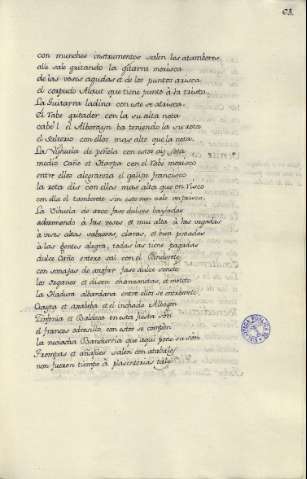 con munchos instrumentos salen los atambores
alli sale guitando la guitarra morisca
de las voses agudas et de los puntos arisca
el corpudo Alaut que tiene punto à la trisca
La Guitarra ladina con este se atrisca
El Rabe gritador con la su alta nota
cab'l el Alborayn ba tanjendo la su rota
el Salterio con ellos mas alto que la mota
La Vyhuela de peñola con estos ay sota
medio Caño et Harpa con el Rabe morisco
entre ellos alegransa el galipe francisco
la rota dis con ellos mas alta que un Risco
con ella el tamborete sin este non vale un prisco
La Vihuela de arco fase dulces bayladas
adormiendo à las veses et mui alta à las vegadas
à voses altas sabrosas, claras, et bien pintadas
à las gentes alegra, todas las tiene pagadas
dulce Caño entero sal con el Panderete
con sonajas de asofar fase dulce sonete
los organos et disen chansonetas, et motete
la Hadura albardana entre ellos se entremete
Gayta et axabeba et el inchado Albogon
Zinfonia et Baldosa en esta fiesta son
el frances odresillo con estos se compon
la neciacha Bandurria que aqui pone su son
Trompas et añafiles salen con atabales
non fueron tiempo à plasenterias tales